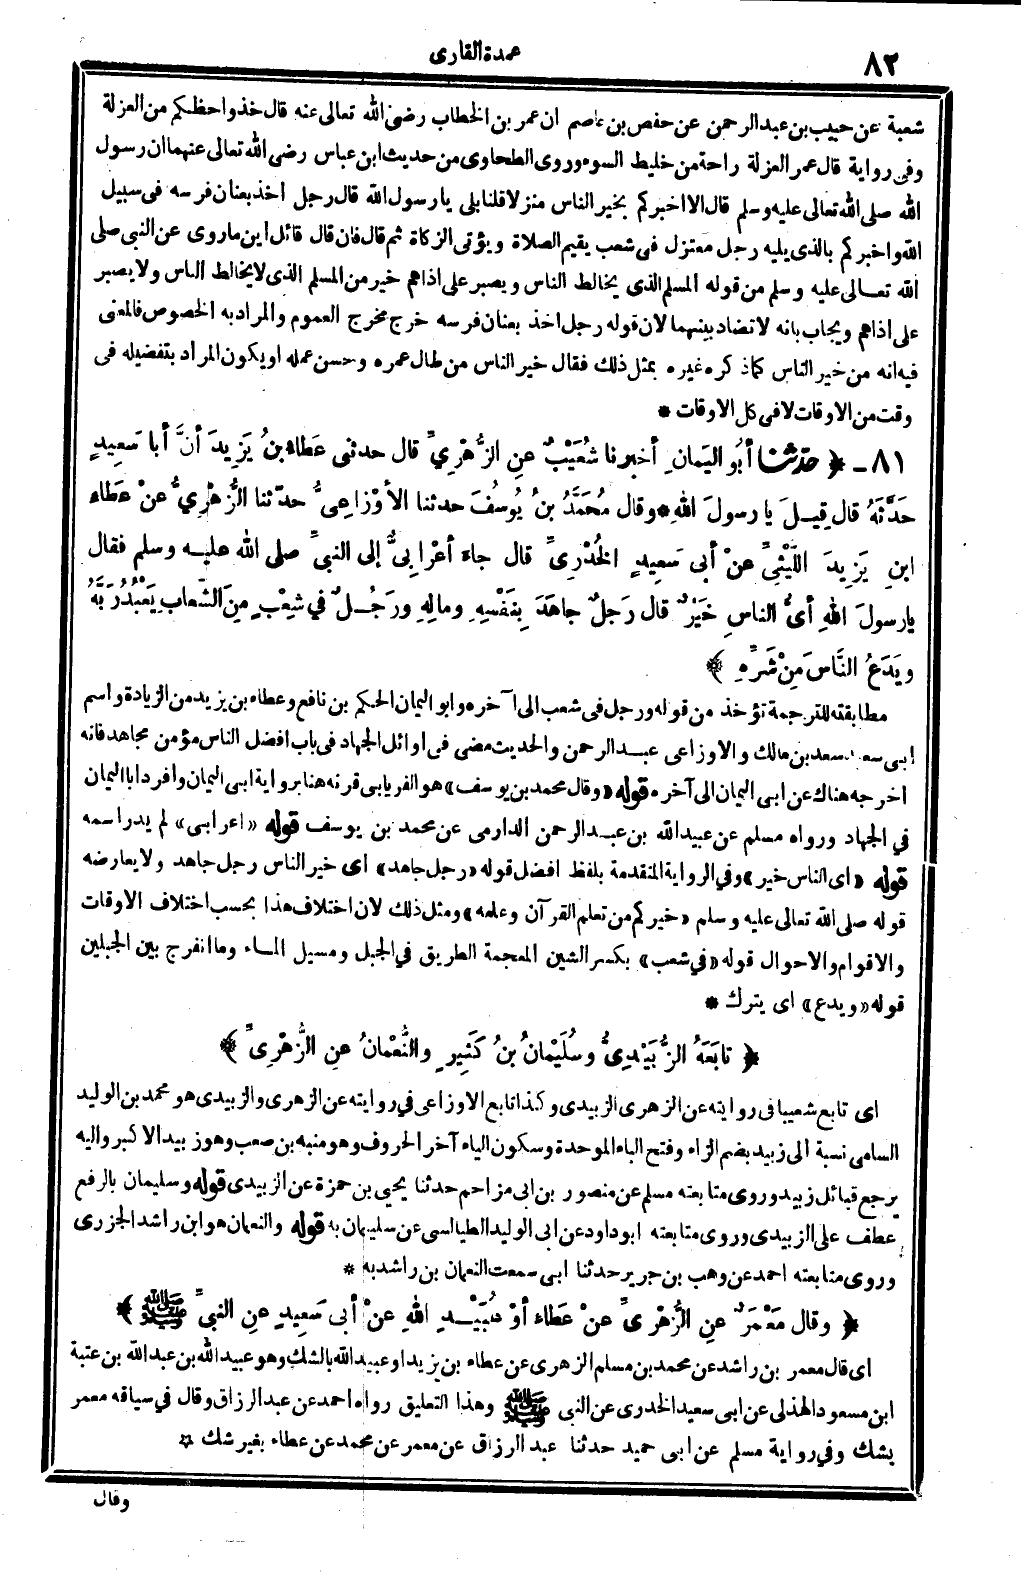 ٨٢
عمدة القارى
شعبة عن حبيب بن عبد الرحمن عن حفص بن عاصم ان عمر بن الخطاب رضى الله تعالى عنه قال خذوا حظكم من العزلة
وفى رواية قال عمر العزلة راحة من خليط السوء وروى الطحاوى من حديث ابن عباس رضى الله تعالى عنهما ان رسول
الله صلى الله تعالى عليه وسلم قال الا اخبركم بخير الناس منزلا قلنا بلى يا رسول الله قال رجل اخذ بعنان فرسه فى سبيل
الله واخبركم بالذى يليه رجل معتزل فى شعب يقيم الصلاة ويؤتى الزكاة ثم قال فان قال قائل اين ما روى عن النبى صلى
الله تعالى عليه وسلم من قوله المسلم الذى يخالط الناس ويصبر على اذاهم خير من المسلم الذى لا يخالط الناس ولا يصبر
على اذاهم ويجاب بانه لا تضاد بينهما لان قوله رجل اخذ بعنان فرسه خرج مخرج العموم والمراد به الخصوص فالمعنى
فيه انه من خير الناس كما ذكره غيره بمثل ذلك فقال خير الناس من طال عمره وحسن عمله او يكون المراد بتفضيله فى
وقت من الاوقات لا فى كل الاوقات *
٨١ ـ ﴿ حدثنا أَبُو اليَمانِ أخبرنا شُعَيْبٌ عنِ الزُّهْرِيِّ قال حدثنى عَطاءُ بنُ يَزِيدَ أنَّ أبا سَعِيدٍ
حَدَّثَهُ قال قِيلَ يا رسولَ اللهِ * وقال مُحَمَّدُ بنُ يُوسُفَ حدثنا الأوْزاعِىُّ حدّثنا الزُّهْرِىُّ عنْ عَطاءِ
ابنِ يَزِيدَ اللَّيْثِيِّ عنْ أبى سَعِيدٍ الخُدْرِىِّ قال جاءَ أعْرابِىٌّ إلى النبىِّ صلى الله عليه وسلم فقال
يارسولَ اللهِ أىُّ الناسِ خَيْرٌ قال رَجلٌ جاهَدَ بِنَفْسِهِ ومالِهِ ورَجُلٌ في شِعْبٍ مِنَ الشّعابِ يَعْبُدُ رَبَّهُ
ويَدَعُ النَّاسَ مِنْ شَرِّهِ ﴾
مطابقته للترجمة تؤخذ من قوله ورجل فى شعب الى آخره وابو اليمان الحكم بن نافع وعطاء بن يزيد من الزيادة واسم
ابى سعيد سعد بن مالك والاوزاعى عبد الرحمن والحديث مضى فى اوائل الجهاد فى باب افضل الناس مؤمن مجاهد فانه
اخرجه هناك عن ابى اليمان الى آخره قوله «وقال محمد بن يوسف» هو الفريابى قرنه هنا برواية ابى اليمان وافرد ابا اليمان
في الجهاد ورواه مسلم عن عبيد الله بن عبد الرحمن الدارمى عن محمد بن يوسف قوله «اعرابى» لم يدر اسمه
قوله «اى الناس خير» وفي الرواية المتقدمة بلفظ افضل قوله «رجل جاهد» اى خير الناس رجل جاهد ولا يعارضه
قوله صلى الله تعالى عليه وسلم «خيركم من تعلم القرآن وعلمه» ومثل ذلك لان اختلاف هذا بحسب اختلاف الاوقات
والاقوام والاحوال قوله «في شعب» بكسر الشين المعجمة الطريق في الجبل ومسيل الماء وما انفرج بين الجبلين
قوله «ويدع» اى يترك *
﴿ تابَعَهُ الزُّبَيْدِىُّ وسُلَيْمانُ بنُ كَثِيرٍ والنُّعْمانُ عنِ الزُّهْرِىِّ ﴾
اى تابع شعيبا فى روايته عن الزهرى الزبيدى وكذا تابع الاوزاعى في روايته عن الزهرى والزبيدى هو محمد بن الوليد
السامى نسبة الى زبيد بضم الزاء وفتح الباء الموحدة وسكون الياء آخر الحروف وهو منبه بن صعب وهو زبيد الاكبر واليه
يرجع قبائل زبيد وروى متابعته مسلم عن منصور بن ابى مزاحم حدثنا يحيى بن حمزة عن الزبيدى قوله وسليمان بالرفع
عطف على الزبيدى وروى متابعته ابو داود عن ابى الوليد الطيالسى عن سليمان به قوله والنعمان هو ابن راشد الجزرى
وروى متابعته احمد عن وهب بن جرير حدثنا ابى سمعت النعمان بن راشد به *
﴿ وقال مَعْمَرٌ عنِ الزُّهْرِىِّ عنْ عَطاءٍ أوْ عُبَيْدِ اللهِ عنْ أبى سَعِيدٍ عنِ النبىِّ ﷺ ﴾
اى قال معمر بن راشد عن محمد بن مسلم الزهرى عن عطاء بن يزيد او عبيد الله بالشك وهو عبيد الله بن عبد الله بن عتبة
ابن مسعود الهذلى عن ابى سعيد الخدرى عن النبى ﷺ وهذا التعليق رواه احمد عن عبد الرزاق وقال في سياقه معمر
يشك وفي رواية مسلم عن ابى حميد حدثنا عبد الرزاق عن معمر عن محمد عن عطاء بغير شك *
وقال